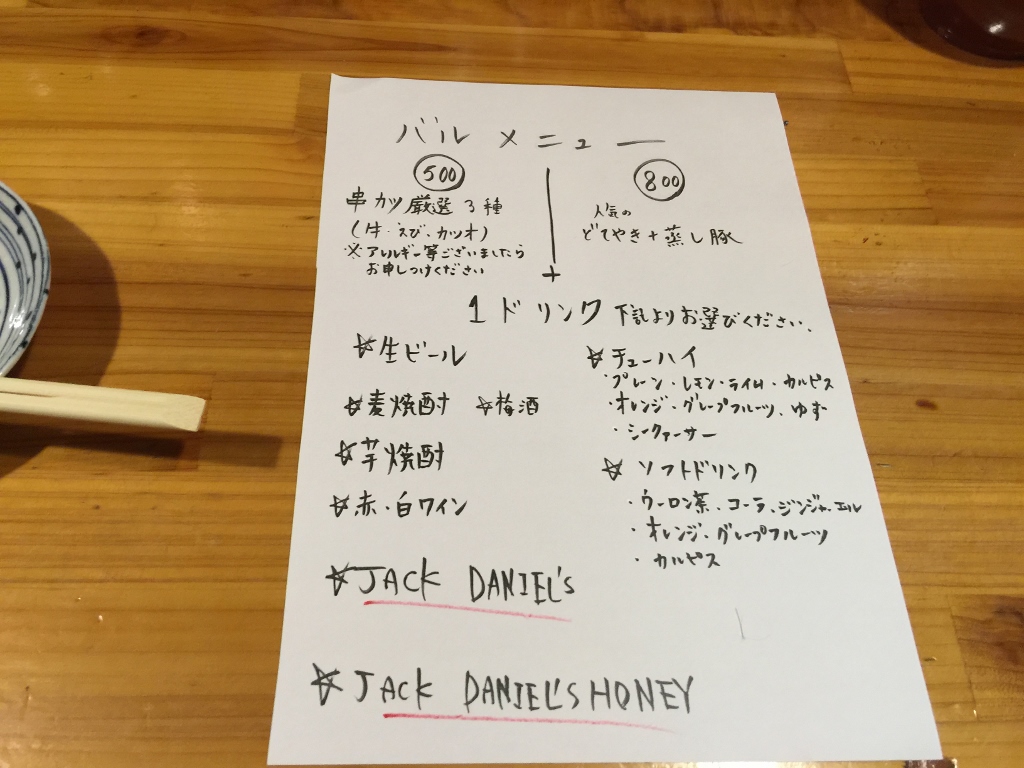 バル メニュー
500
串カツ厳選3種
(牛・えび、カツオ)
※アレルギー等ございましたら
お申しつけください
800
人気の
どてやき+蒸し豚
+
1ドリンク 下記よりお選びください、
☆生ビール
☆麦焼酎 ☆梅酒
☆芋焼酎
☆赤・白ワイン
☆チューハイ
・プレーン・レモン・ライム・カルピス
・オレンジ・グレープフルーツ、ゆず
・シークァーサー
☆ソフトドリンク
・ウーロン茶、コーラ、ジンジャーエル
・オレンジ・グレープフルーツ
・カルピス
☆JACK DANIEL's
☆JACK DANIEL'S HONEY